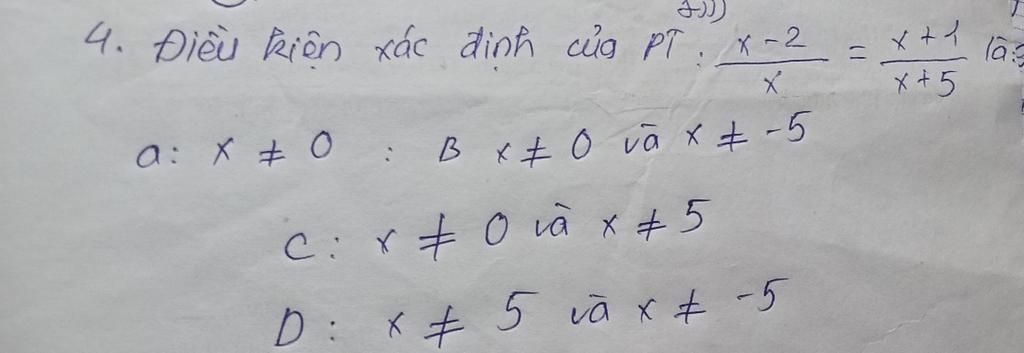 4. Điều kiện xác định của PT: \frac{x-2}{x} = \frac{x+1}{x+5} là:
a: x ≠ 0 : B x ≠ 0 và x ≠ -5
C: x ≠ 0 và x ≠ 5
D: x ≠ 5 và x ≠ -5